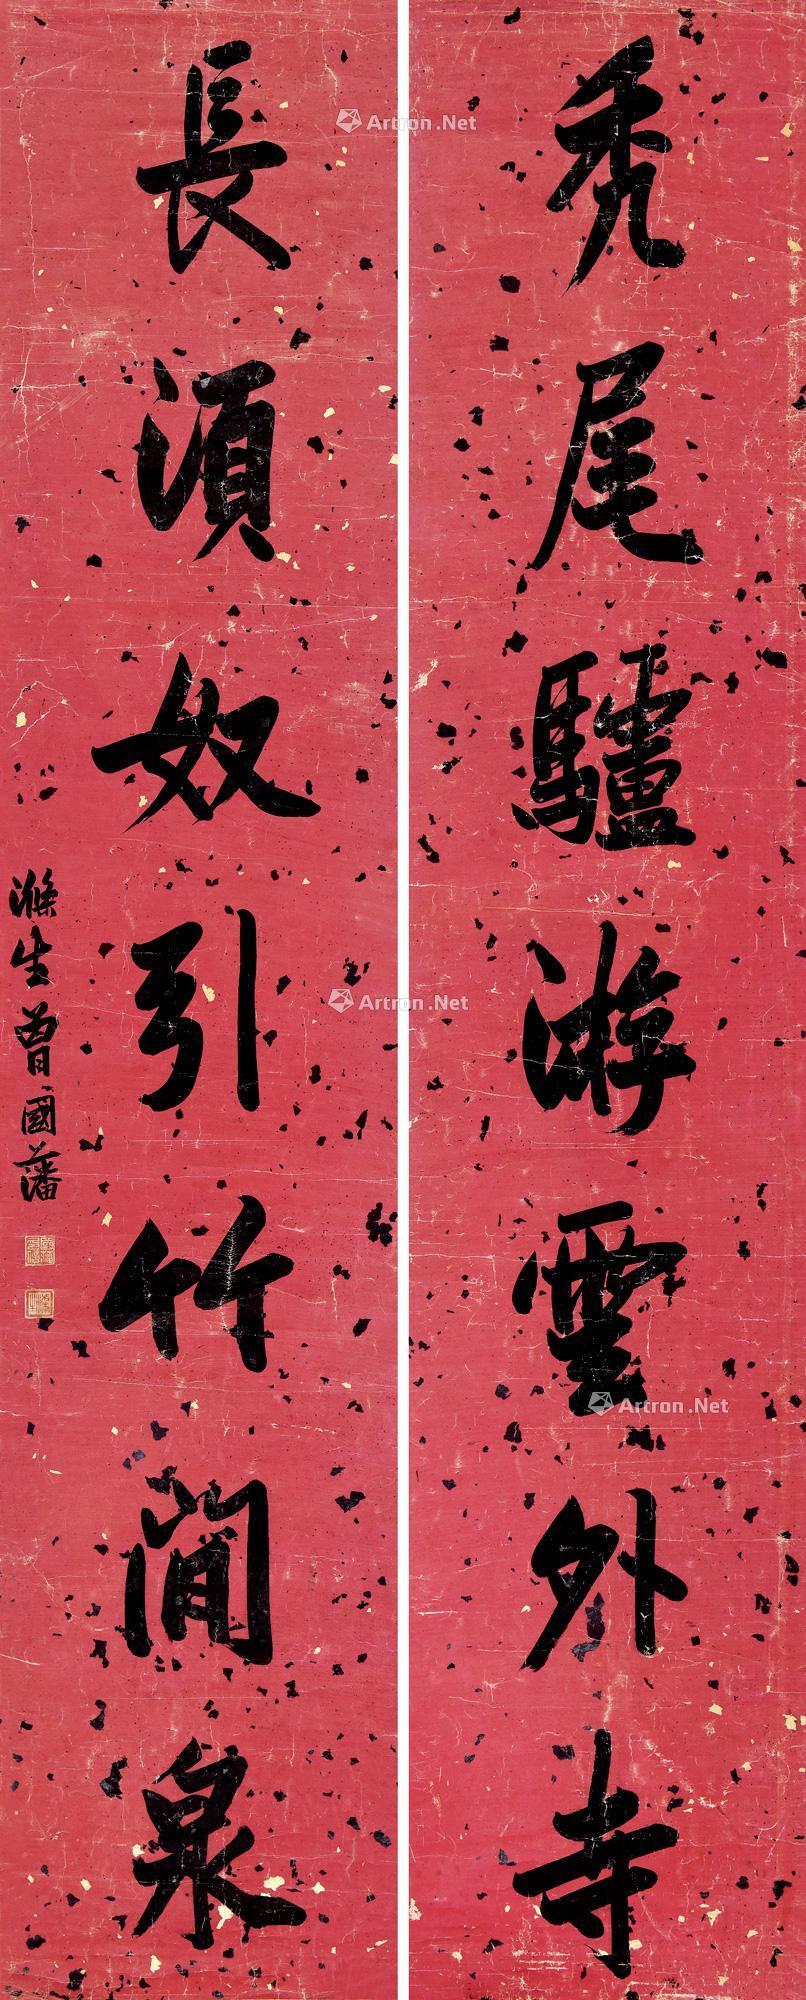 禿尾驢游雲外寺
長須奴引竹間泉
滌生曾國藩
Artron.Net
Artron.Net
Artron.Net